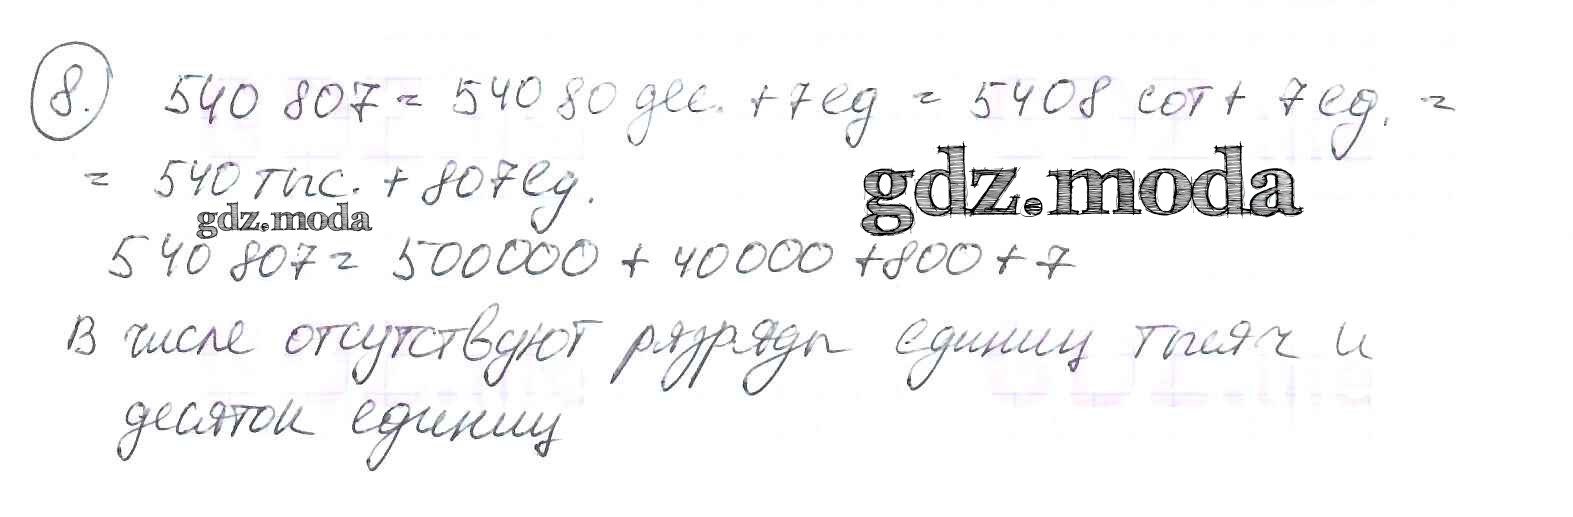 8. 540 807 = 54080 дес. + 7 ед = 5408 сот + 7 ед. =
= 540 тыс. + 807 ед.
gdz.moda
gdz.moda
540 807 = 500000 + 40000 + 800 + 7
В числе отсутствуют разряды единиц тысяч и
десяток единиц